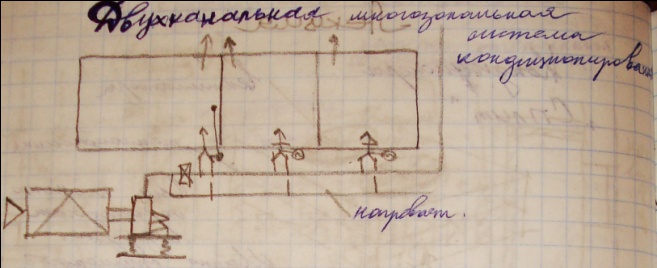 Двухканальная многозональная
система
кондиционирования
нагреват.